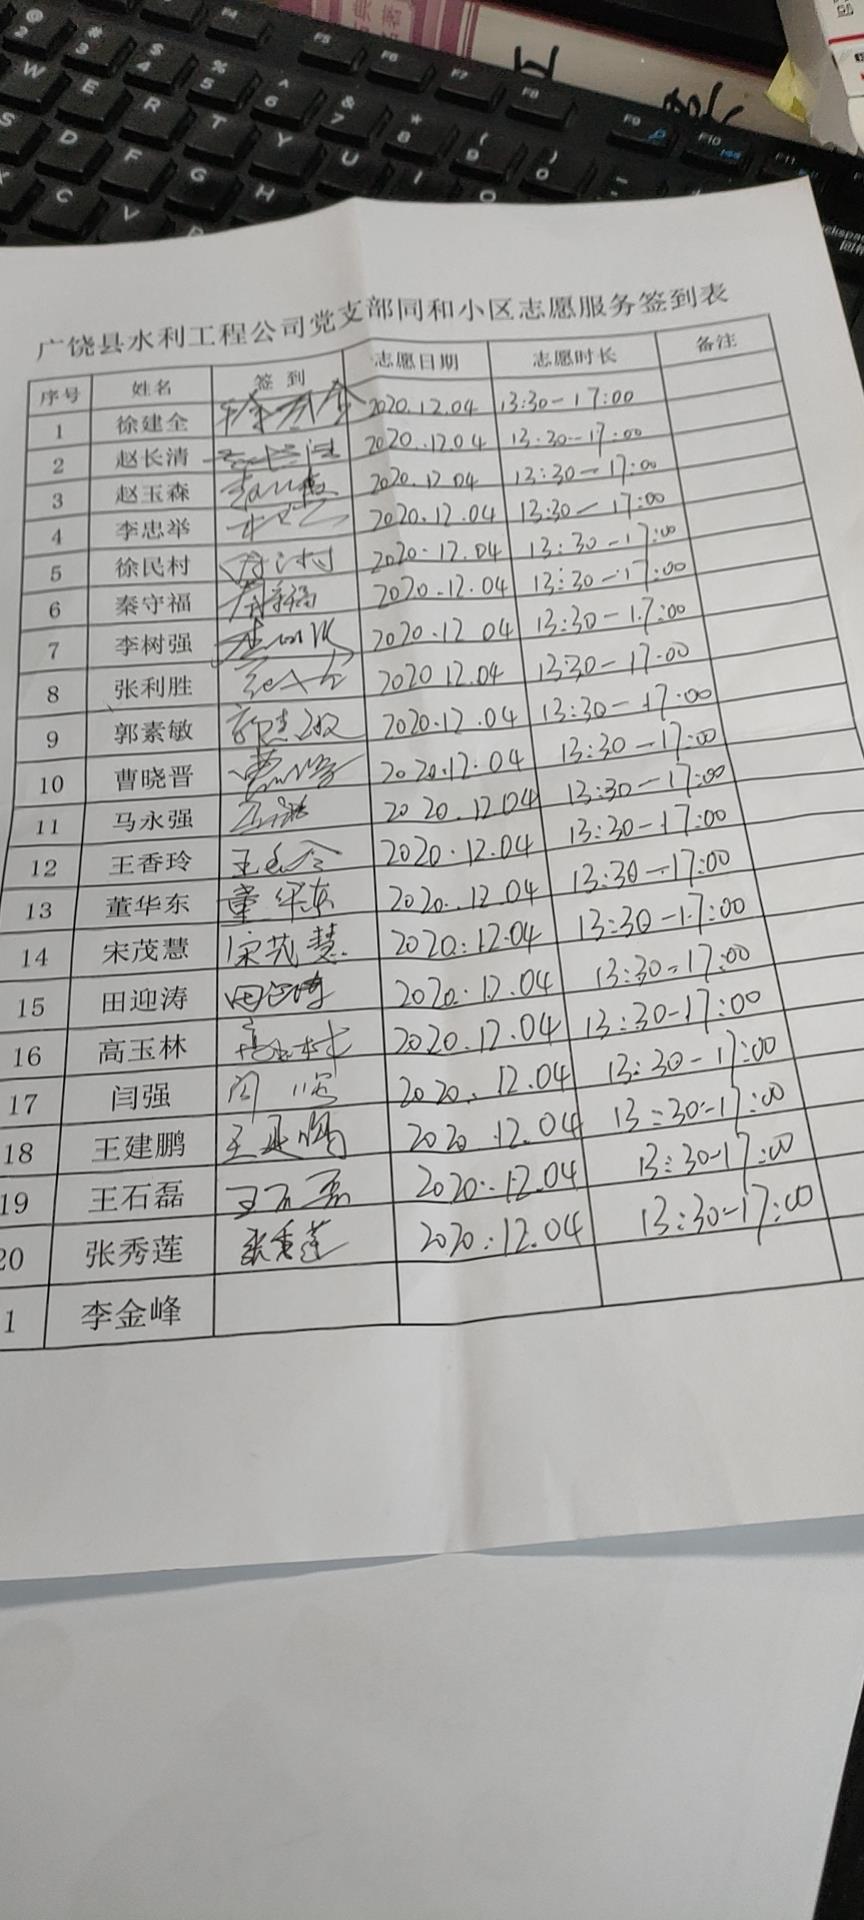 广饶县水利工程公司党支部同和小区志愿服务签到表
序号 姓名 签到 志愿日期 志愿时长 备注
1 徐建全 徐建全 2020.12.04 13:30-17:00
2 赵长清 2020.12.04 13:30-17:00
3 赵玉森 2020.12.04 13:30-17:00
4 李忠举 2020.12.04 13:30-17:00
5 徐民村 2020.12.04 13:30-17:00
6 秦守福 秦守福 2020.12.04 13:30-17:00
7 李树强 2020.12.04 13:30-17:00
8 张利胜 2020.12.04 13:30-17:00
9 郭素敏 郭素敏 2020.12.04 13:30-17:00
10 曹晓晋 2020.12.04 13:30-17:00
11 马永强 2020.12.04 13:30-17:00
12 王香玲 2020.12.04 13:30-17:00
13 董华东 董华东 2020.12.04 13:30-17:00
14 宋茂慧 宋茂慧 2020.12.04 13:30-17:00
15 田迎涛 田迎涛 2020.12.04 13:30-17:00
16 高玉林 高玉林 2020.12.04 13:30-17:00
17 闫强 闫强 2020.12.04 13:30-17:00
18 王建鹏 王建鹏 2020.12.04 13:30-17:00
19 王石磊 王石磊 2020.12.04 13:30-17:00
20 张秀莲 张秀莲 2020.12.04 13:30-17:00
1 李金峰